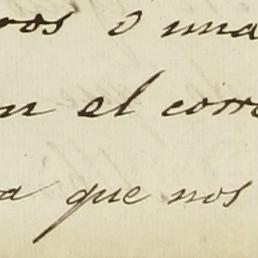 ros o una
en el corre
a que nos